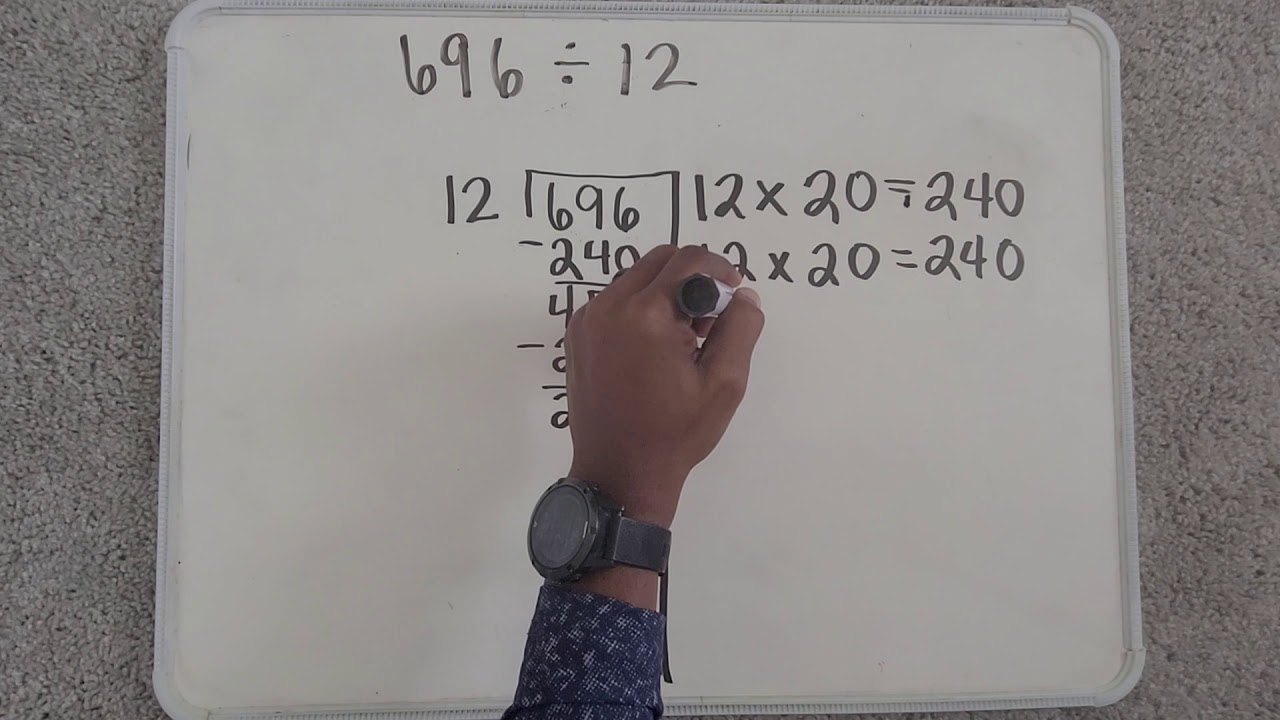 696 ÷ 12
12 696 12 x 20 = 240
- 240 12 x 20 = 240